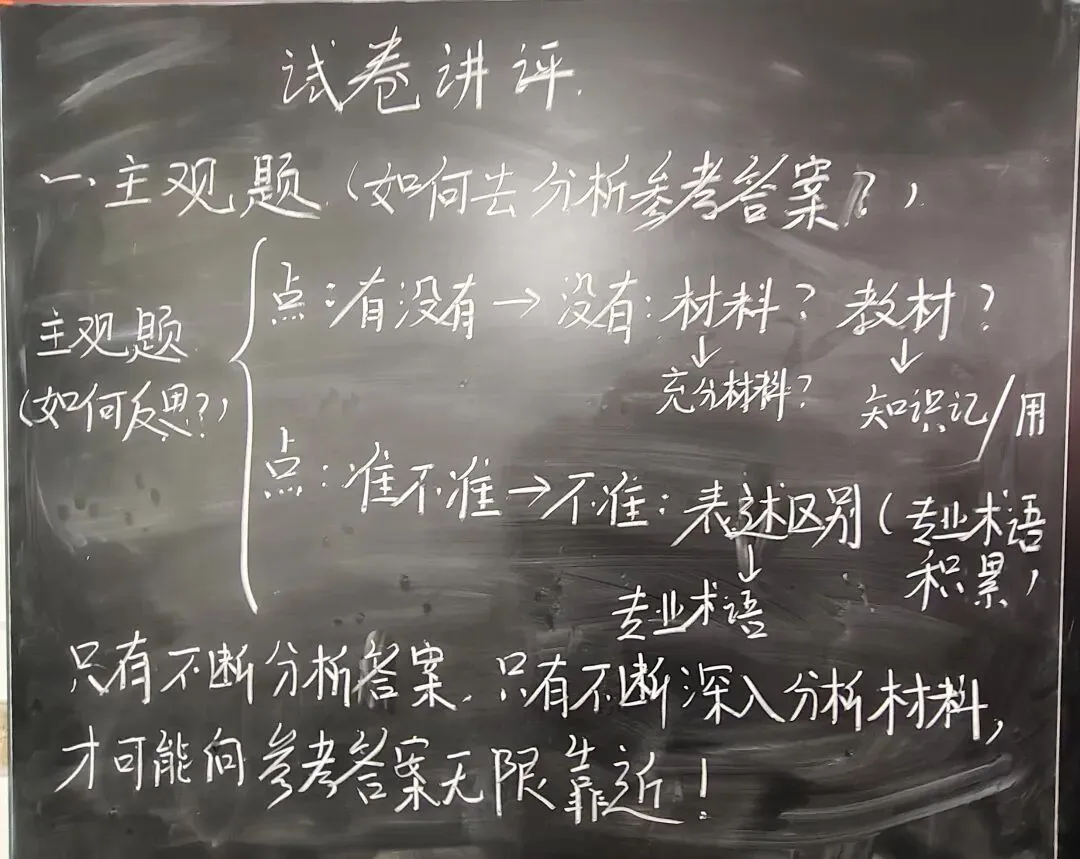 试卷讲评.
一、主观题(如何去分析参考答案?)
主观题
(如何反思?)
点:有没有→没有:材料?教材?
↓ ↓
充分材料? 知识记/用
点:准不准→不准:表述区别(专业术语
积累)
↓
专业术语
只有不断分析答案,只有不断深入分析材料,
才可能向参考答案无限靠近!